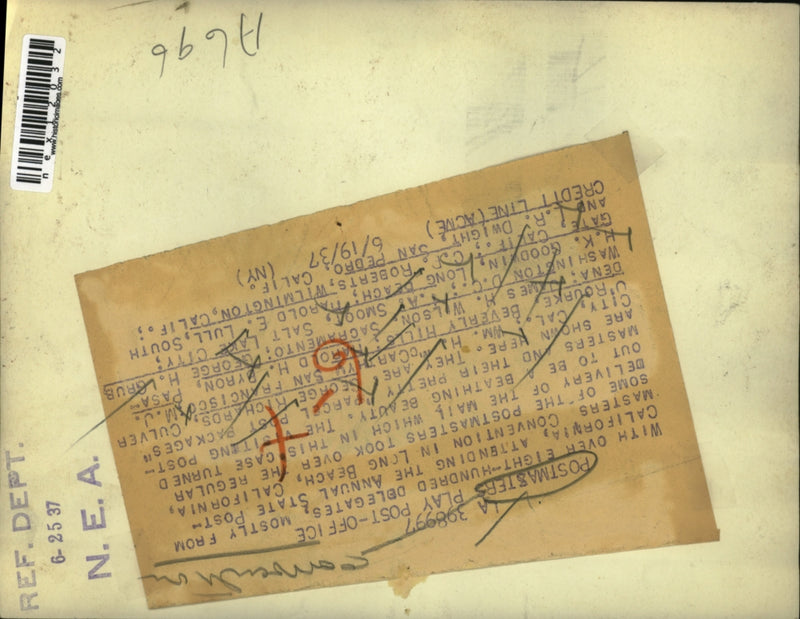 A696
n e x 1 2 0 3 2
www.historicimages.com
398997 LA
POSTMASTERS PLAY POST-OFFICE
WITH OVER EIGHT-HUNDRED DELEGATES, MOSTLY FROM
CALIFORNIA, ATTENDING THE ANNUAL STATE POST-
MASTERS CONVENTION IN LONG BEACH, CALIFORNIA,
SOME OF THE POSTMASTERS TOOK OVER THE REGULAR
DELIVERY OF THE MAIL WHICH IN THIS CASE TURNED
OUT TO BE BEATHING BEAUTY. THE VISITING POST-
MASTERS AND THE PRETTY "PARCEL POST PACKAGES"
ARE SHOWN HERE. THEY ARE RICHARDS, CULVER
CITY, CAL. WM. H. SAN FRANCISCO J.M.
O'ROURKE, BEVERLY HILLS BYRON, PASA-
DENA; JAMES H. WILSON, SACRAMENTO; GEORGE H. KRUB
WASHINGTON D.C. A. SMOOT, SALT LAKE CITY;
H.K. GOODWIN, LONG BEACH; HAROLD E. LULL, SOUTH
GATE, CALIF.; C.F. ROBERTS, WILMINGTON, CALIF.;
AND E.R. DWIGHT, SAN PEDRO, CALIF.
CREDIT LINE (ACME) 6/19/37 (NY) F
REF. DEPT.
6-25 37
N. E. A.